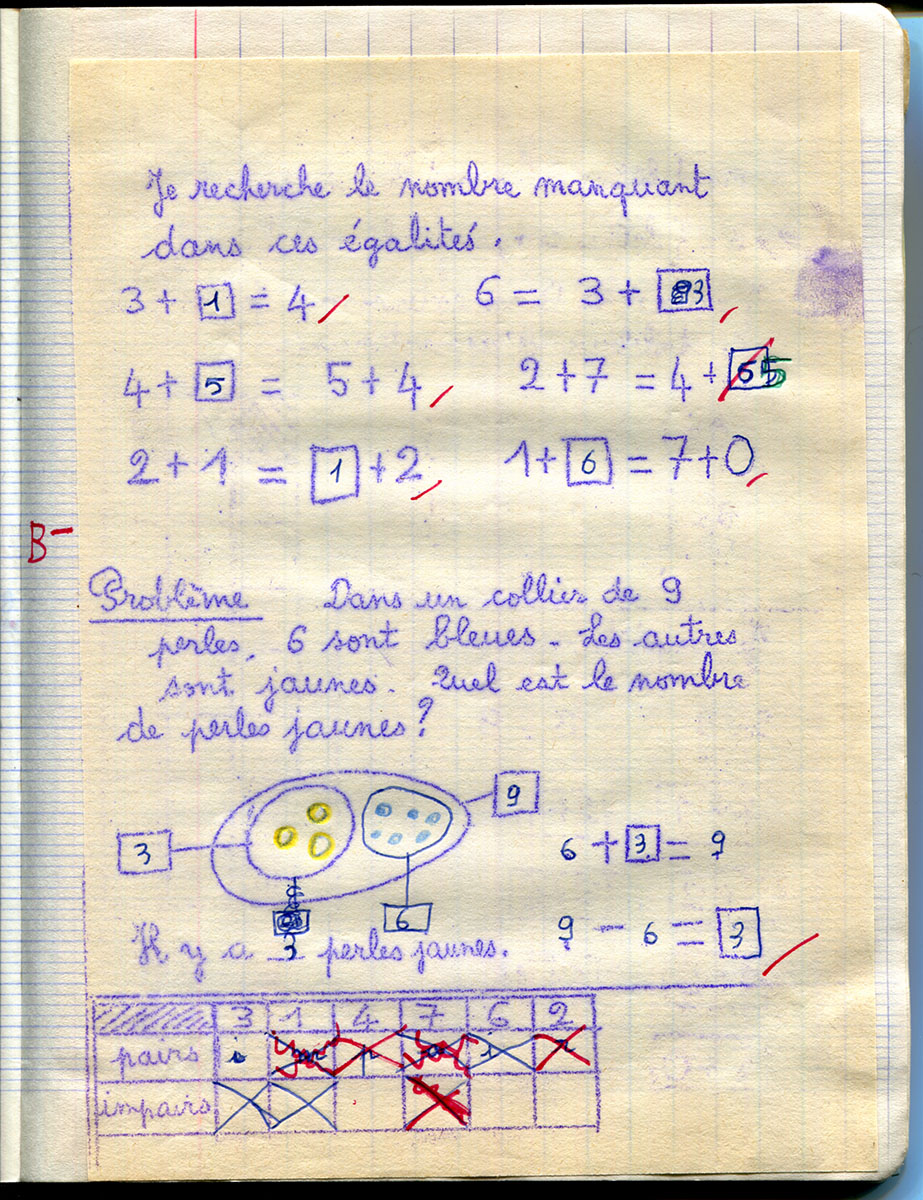 Je recherche le nombre manquant
dans ces égalités.
3 + 1 = 4 6 = 3 + 3
4 + 5 = 5 + 4 2 + 7 = 4 + 5
2 + 1 = 1 + 2 1 + 6 = 7 + 0
B-
Problème Dans un collier de 9
perles, 6 sont bleues. Les autres
sont jaunes. Quel est le nombre
de perles jaunes ?
9
3
6 + 3 = 9
6
9 - 6 = 3
Il y a 3 perles jaunes.
3 1 4 7 6 2
pairs
impairs